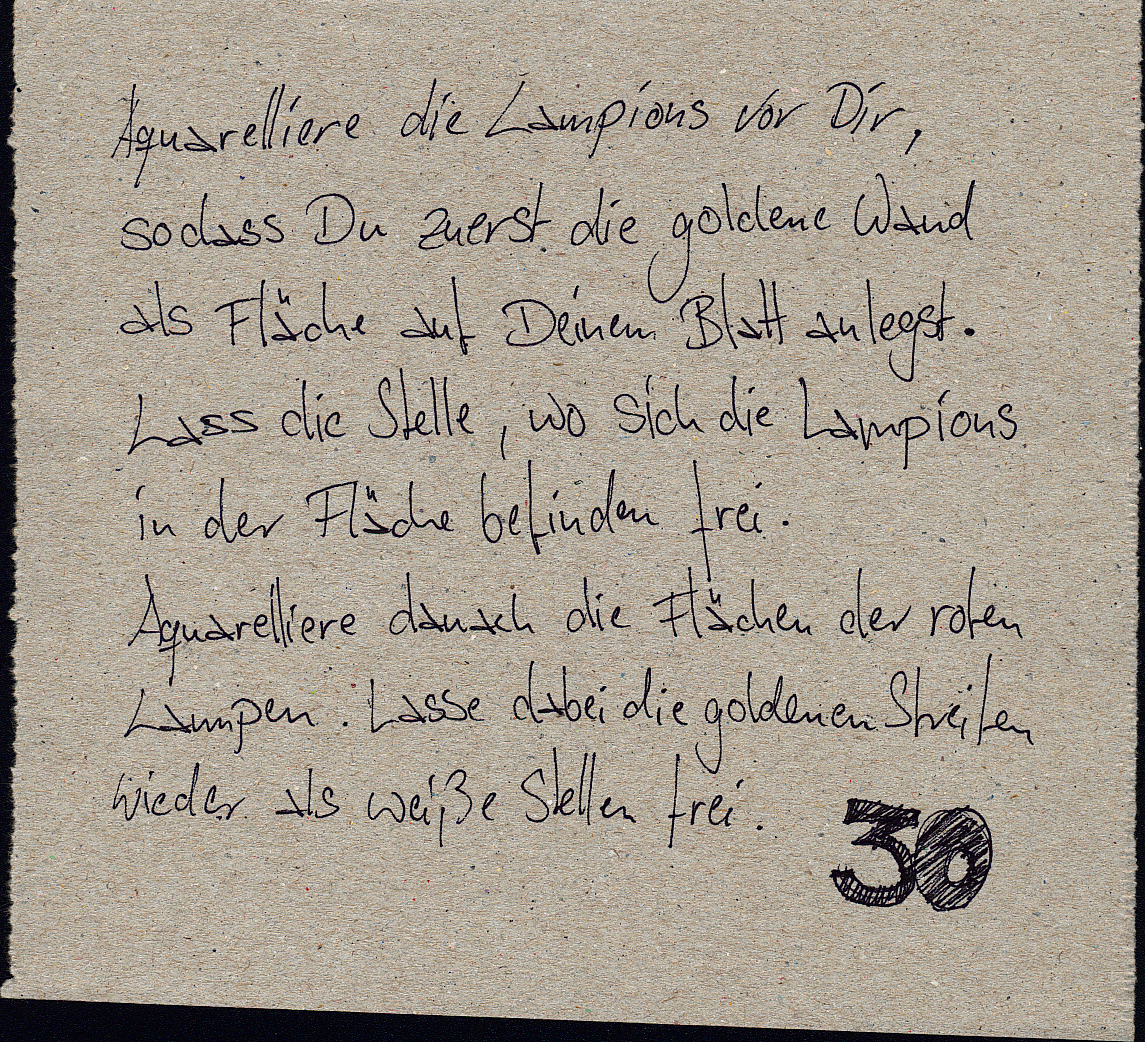 Aquarelliere die Lampions vor Dir,
sodass Du zuerst die goldene Wand
als Fläche auf Deinem Blatt anlegst.
Lass die Stelle, wo sich die Lampions
in der Fläche befinden frei.
Aquarelliere danach die Flächen der roten
Lampen. Lasse dabei die goldenen Streifen
wieder als weiße Stellen frei.
30